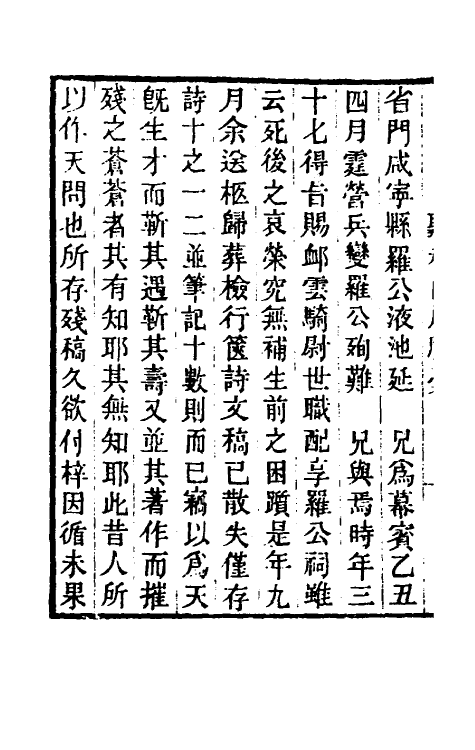 省門咸寧縣羅公液池延　兄爲幕賓乙丑
四月霆營兵變羅公殉難　兄與焉時年三
十七得旨賜卹雲騎尉世職配享羅公祠雖
云死後之哀榮究無補生前之困躓是年九
月余送柩歸葬檢行篋詩文稿已散失僅存
詩十之一二並筆記十數則而已竊以爲天
旣生才而靳其遇靳其壽又並其著作而摧
殘之蒼蒼者其有知耶其無知耶此昔人所
以作天問也所存殘稿久欲付梓因循未果